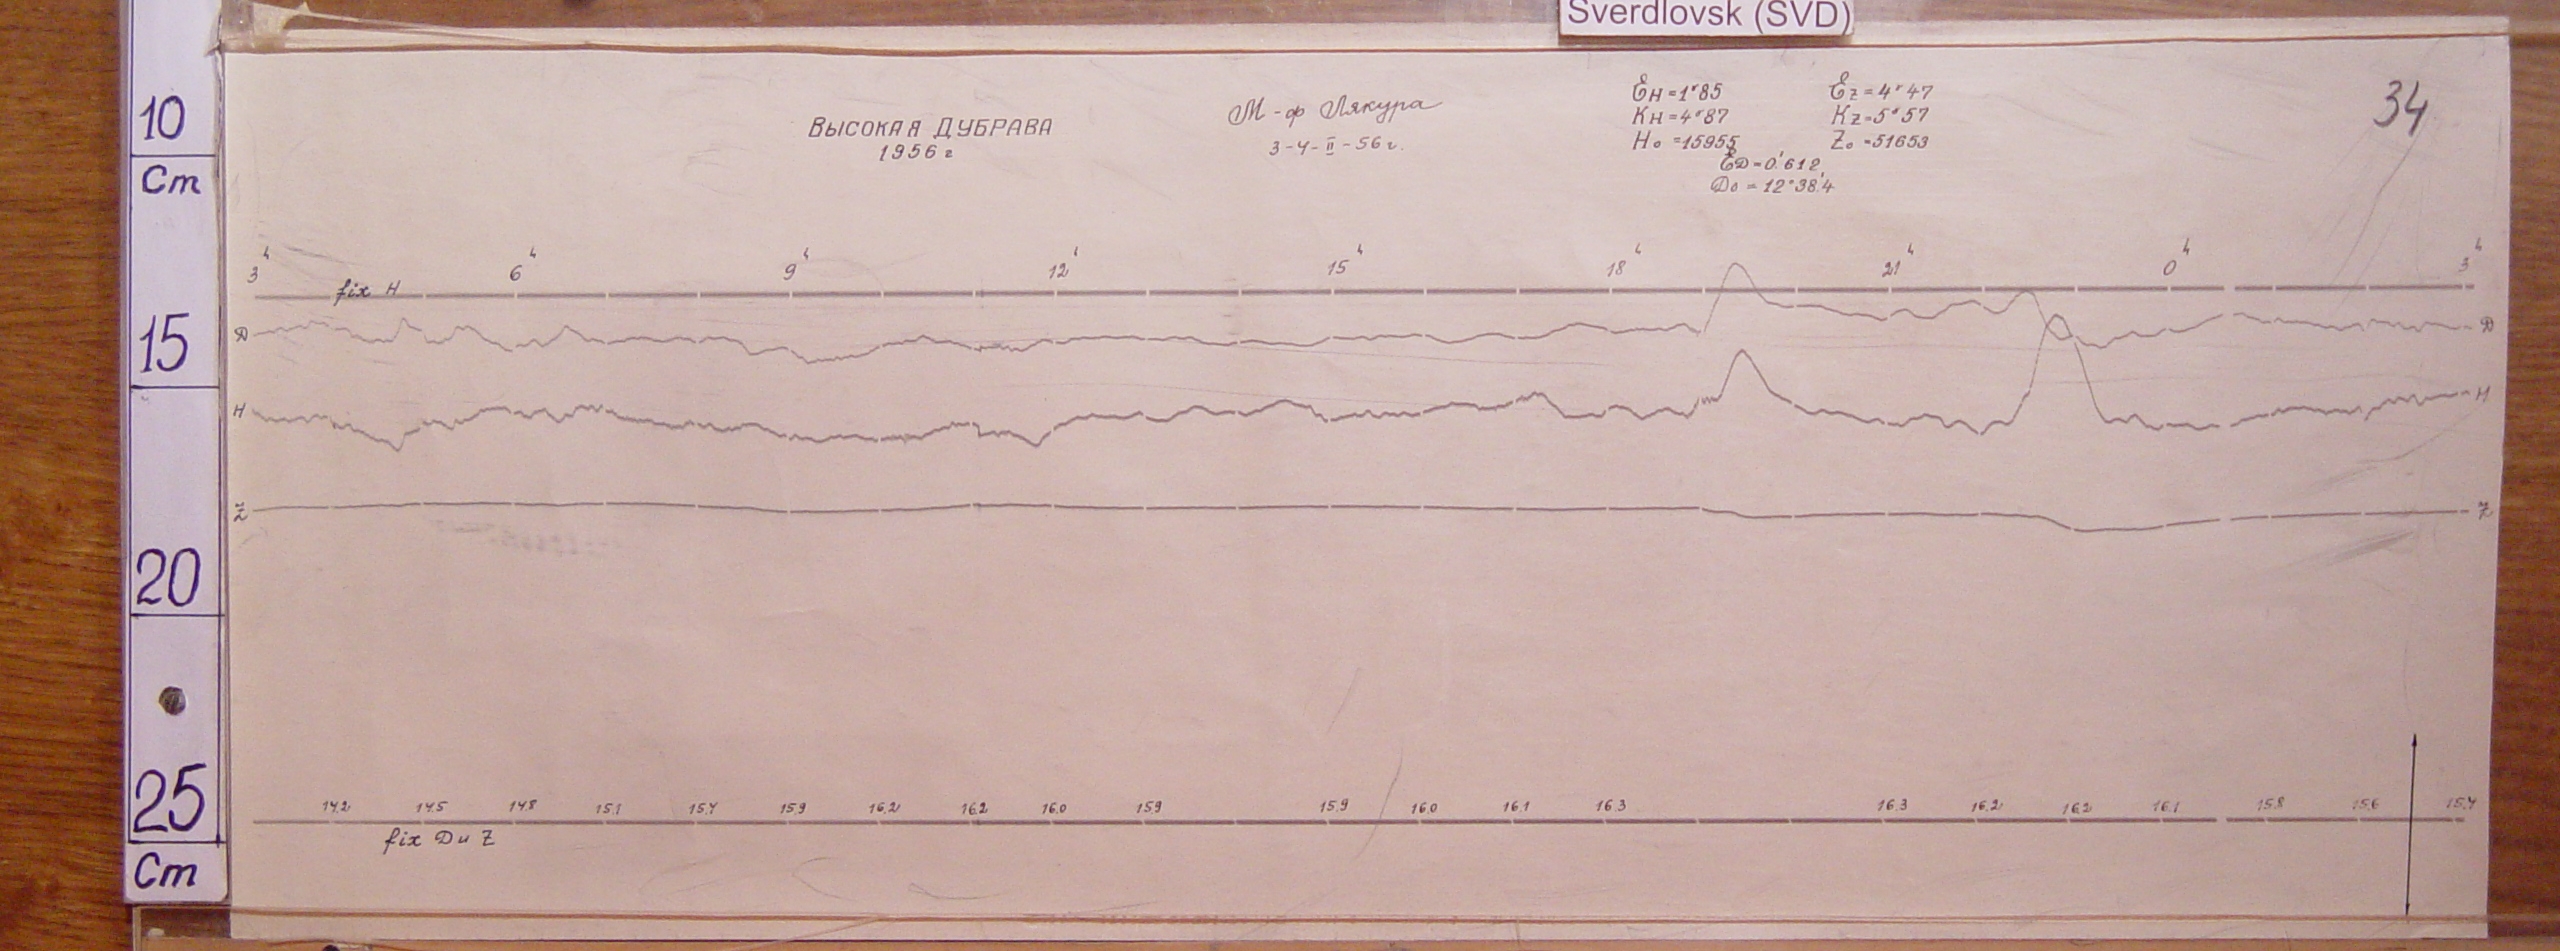 Sverdlovsk (SVD)
10
Cm
15
20
25
Cm
ВЫСОКАЯ ДУБРАВА
1956 г
М-ф Лякура
3-4-II-56 г.
Ɛн=1ʳ85
Кн=4ʳ87
Н₀=15955
Ɛz=4ʳ47
Кz=5ʳ57
Z₀=51653
ƐD=0.′612
D₀=12°38.′4
34
3ч 6ч 9ч 12ч 15ч 18ч 21ч 0ч 3ч
fix H
D D
H H
Z Z
14.2 14.5 14.8 15.1 15.4 15.9 16.2 16.2 16.0 15.9 15.9 16.0 16.1 16.3 16.3 16.2 16.2 16.1 15.8 15.6 15.4
fix D и Z